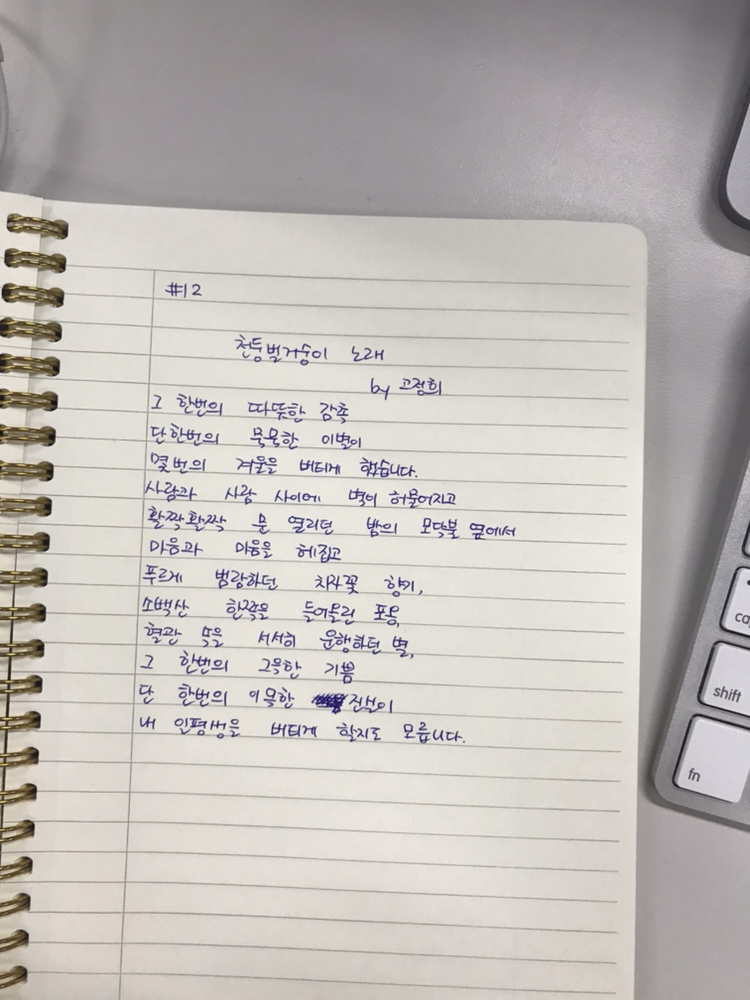 #12
천둥벌거숭이 노래
by 고정희
그 한번의 따뜻한 감촉
단 한번의 묵묵한 이별이
몇 번의 겨울을 버티게 했습니다.
사람과 사람 사이에 벽이 허물어지고
활짝 활짝 문 열리던 밤의 모닥불 옆에서
마음과 마음을 헤집고
푸르게 범람하던 치자꽃 향기,
소백산 한쪽을 들어올린 포옹,
혈관 속을 서서히 운행하던 별,
그 한번의 그윽한 기쁨
단 한번의 이윽한 진실이
내 일평생을 버티게 할지도 모릅니다.
shift
fn